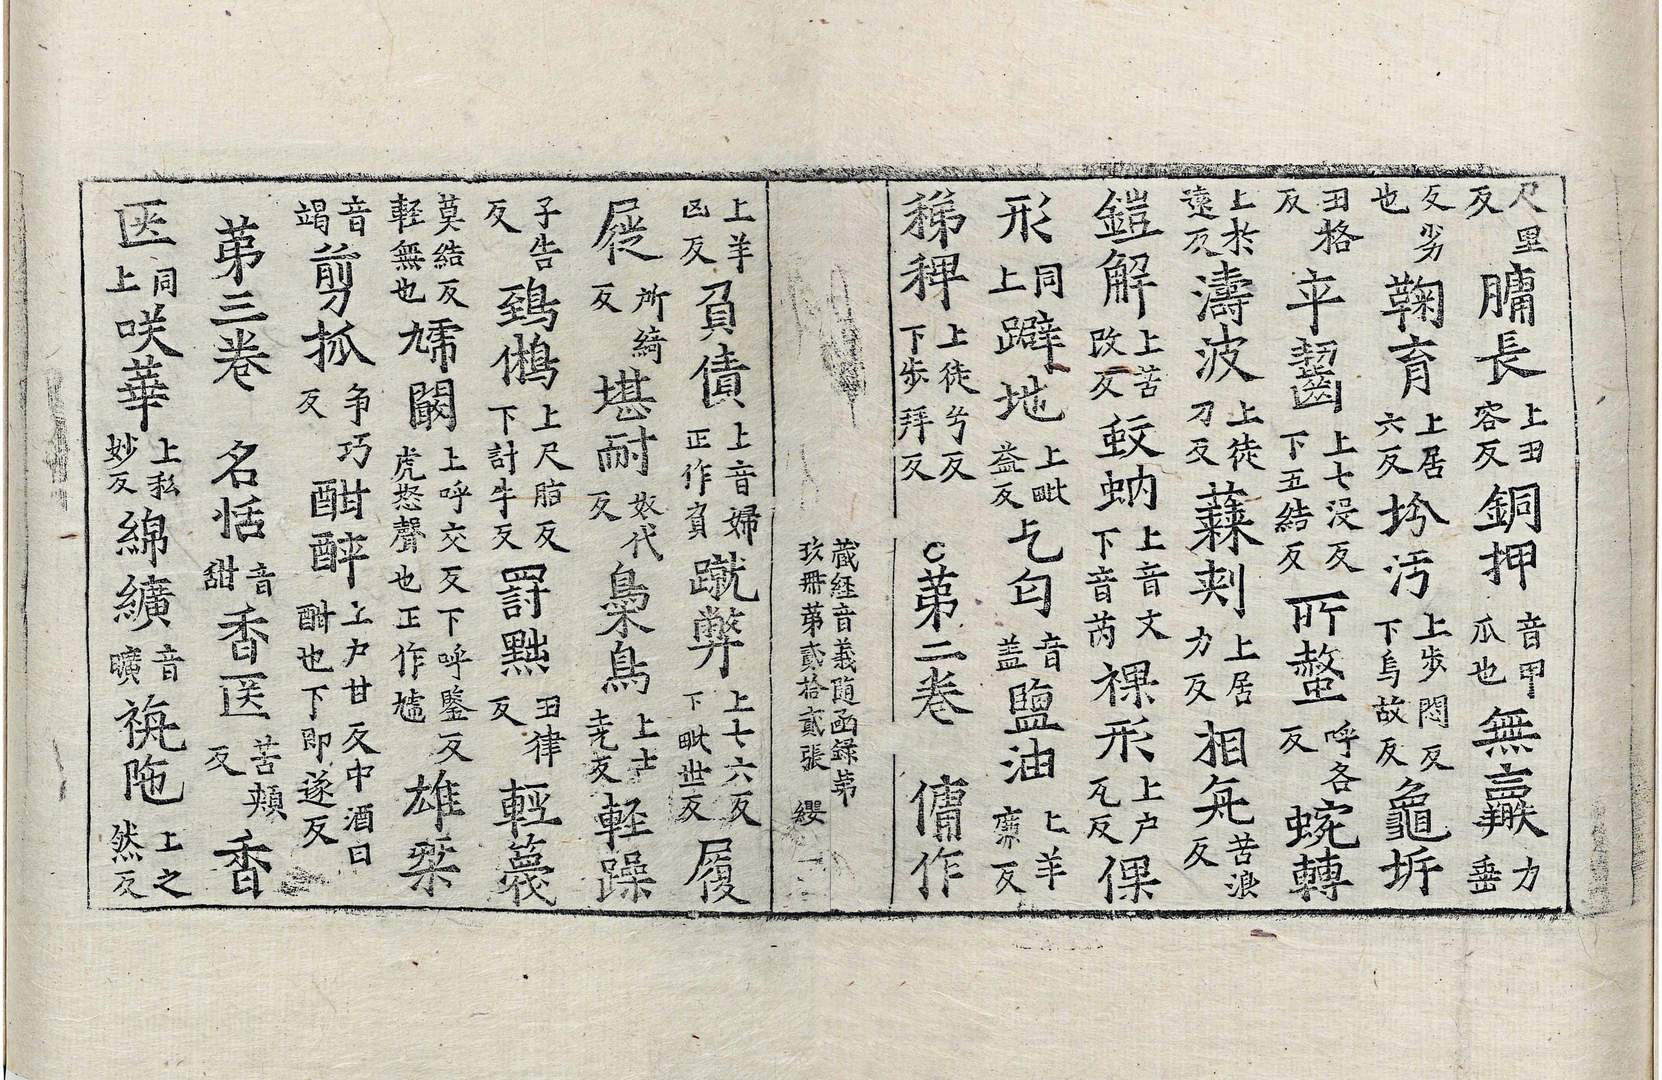 尺里反𦟛長上丑容反銅押音甲爪也無羸力垂
反劣也鞠育上居六反坋汚上步悶反下烏故反龜坼
丑格反平齧上七浸反下五結反所螫呼各反蜿轉
上於遠反濤波上徒刀反蕀刾上居力反相㐹苦浪反
鎧解上苦改反蚊蚋上音文下音芮裸形上户瓦反倮
形同上躃地上毗益反乞匂音盖鹽油上羊廉反
稊稗上徒兮反下步拜反
第二卷 傭作
藏經音義随函録苐玖冊苐貳拾貳張 纓
上羊凶反負債上音婦正作負蹴弊上七六反下毗世反履
屣所綺反堪耐奴代反梟鳥上士尭反軽躁
子告反鵄鵂上尺脂反下計牛反罸黜丑律反輕篾
莫結反軽無也嚅㘚上呼交反下呼鑒反虎怒聲也正作㙈雄傑
音竭剪抓争巧反酣醉上户甘反中酒曰酣也下即遂反
苐三卷 名恬音甜香医苦頰反香
医同上咲華上私妙反綿纊音曠㲲陁上之然反